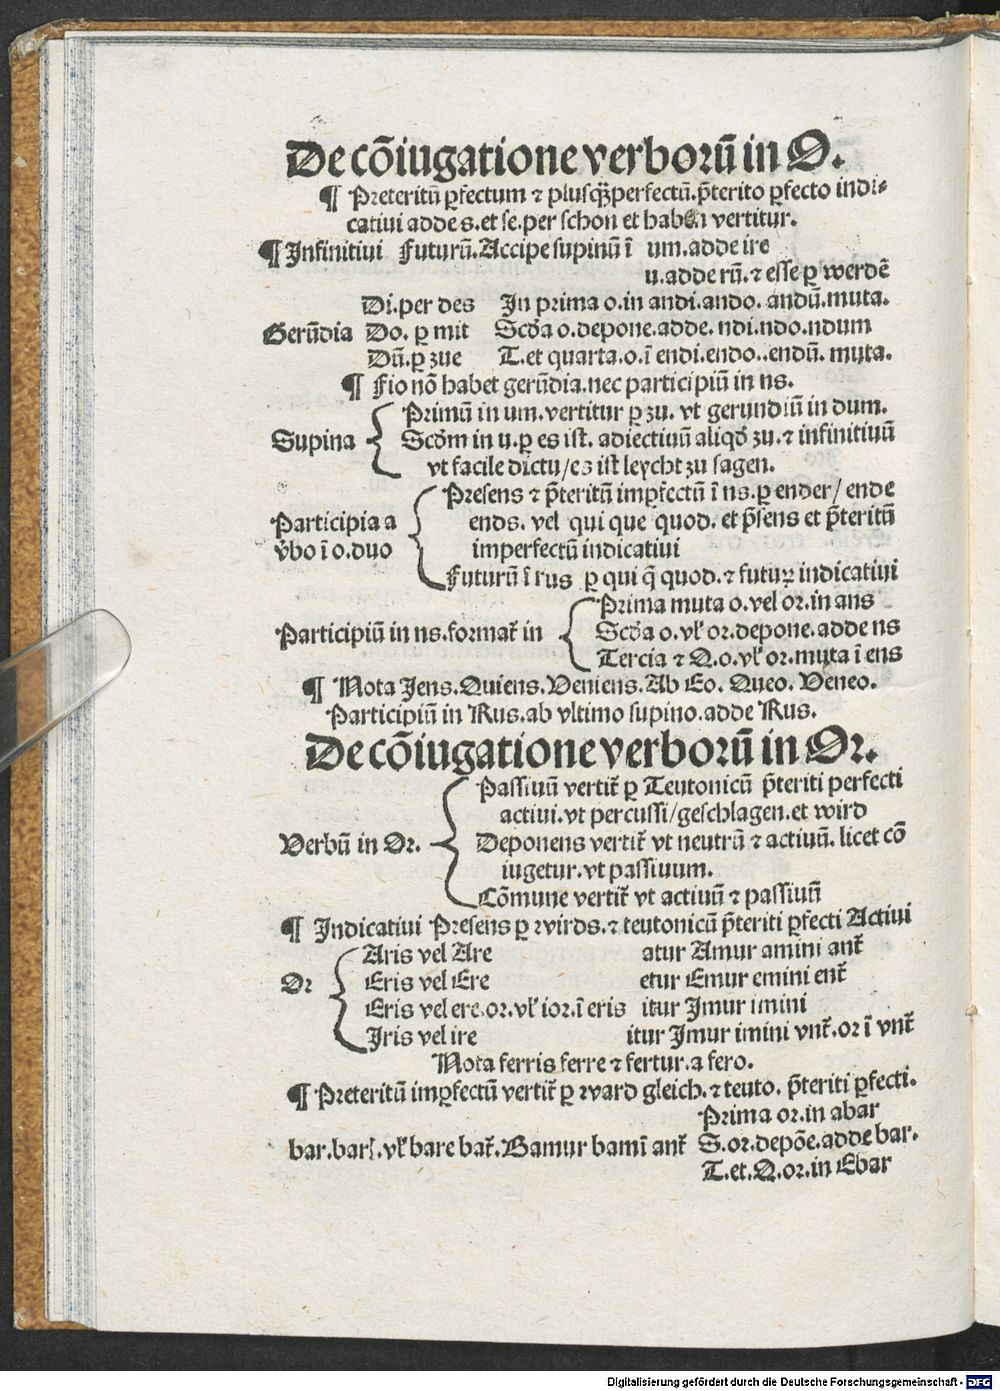 De cõiugatione verborũ in O.
¶ Preteritũ ꝑfectum ⁊ plusq̃ꝑperfectũ. p̃terito ꝑfecto indi-
catiui adde s. et se. per schon et haben vertitur.
¶ Infinitiui Futurũ. Accipe supinũ ĩ um. adde ire
u. adde rũ. ⁊ esse ꝑ werdẽ
Di. per des In prima o. in andi. ando. andũ. muta.
Gerũdia Do. ꝑ mit Scd̃a o. depone. adde. ndi. ndo. ndum
Dũ. ꝑ zue T. et quarta. o. ĩ endi. endo.. endũ. muta.
¶ Fio nõ habet gerũdia. nec participiũ in ns.
Primũ in um. vertitur ꝑ zu. vt gerundiũ in dum.
Supina Scd̃m in u. ꝑ es ist. adiectiuũ aliqd̃ zu. ⁊ infinitiuũ
vt facile dictu/es ist leycht zu sagen.
Presens ⁊ p̃teritũ imꝑfectũ ĩ ns. ꝑ ender/ ende
Participia a ends. vel qui que quod. et p̃sens et p̃teritũ
v̉bo ĩ o. duo imperfectũ indicatiui
Futurũ ĩ rus ꝑ qui q̃ quod. ⁊ futuꝝ indicatiui
Prima muta o. vel or. in ans
Participiũ in ns. format̃ in Scd̃a o. vl̉ or. depone. adde ns
Tercia ⁊ Q. o. vl̉ or. muta ĩ ens
¶ Nota Iens. Quiens. Veniens. Ab Eo. Queo. Veneo.
Participiũ in Rus. ab vltimo supino. adde Rus.
De cõiugatione verborũ in Or.
Passiuũ vertit̃ ꝑ Teutonicũ p̃teriti perfecti
actiui. vt percussi/geschlagen. et wird
Verbũ in Or. Deponens vertit̃ vt neutrũ ⁊ actiuũ. licet cõ
iugetur. vt passiuum.
Cõmune vertit̃ vt actiuũ ⁊ passiuũ
¶ Indicatiui Presens ꝑ rvirds. ⁊ teutonicũ p̃teriti ꝑfecti Actiui
Aris vel Are atur Amur amini ant̃
Or Eris vel Ere etur Emur emini ent̃
Eris vel ere. or. vl̉ ior. ĩ eris itur Imur imini
Iris vel ire itur Imur imini vnt̃. or ĩ vnt̃
Nota ferris ferre ⁊ fertur. a fero.
¶ Preteritũ imꝑfectũ vertit̃ ꝑ rvard gleich. ⁊ teuto. p̃teriti ꝑfecti.
Prima or. in abar
bar. vl̉ bare bat̃. Bamur bamĩ ant̃ S. or. depõe. adde bar.
T. et. Q. or. in Ebar
Digitalisierung gefördert durch die Deutsche Forschungsgemeinschaft - DFG